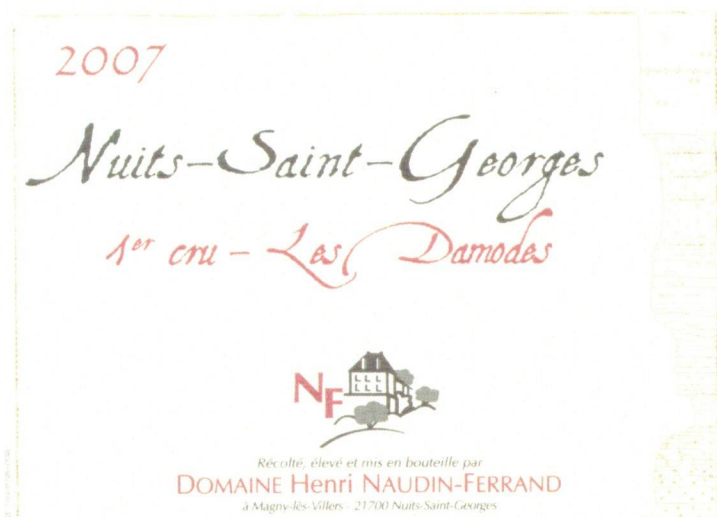 2007
Nuits-Saint-Georges
1er cru - Les Damodes
NF
Récolté, élevé et mis en bouteille par
DOMAINE Henri NAUDIN-FERRAND
à Magny-lès-Villers - 21700 Nuits-Saint-Georges